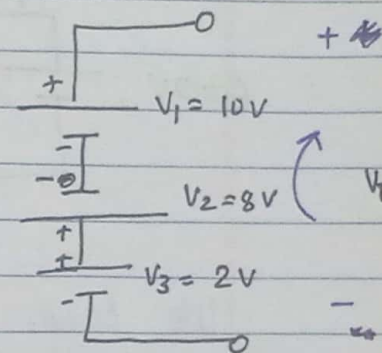 +
+
V₁ = 10V
-
-
V₂ = 8V
+
+
V₃ = 2V
-
-